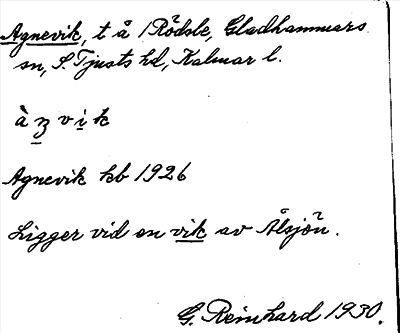 Agnevik, t å Rödsle, Gladhammars
sn, S. Tjusts hd, Kalmar l.
à ŋ v i k
Agnevik kb 1926
Ligger vid en vik av Ålsjön.
G. Reinhard 1930.